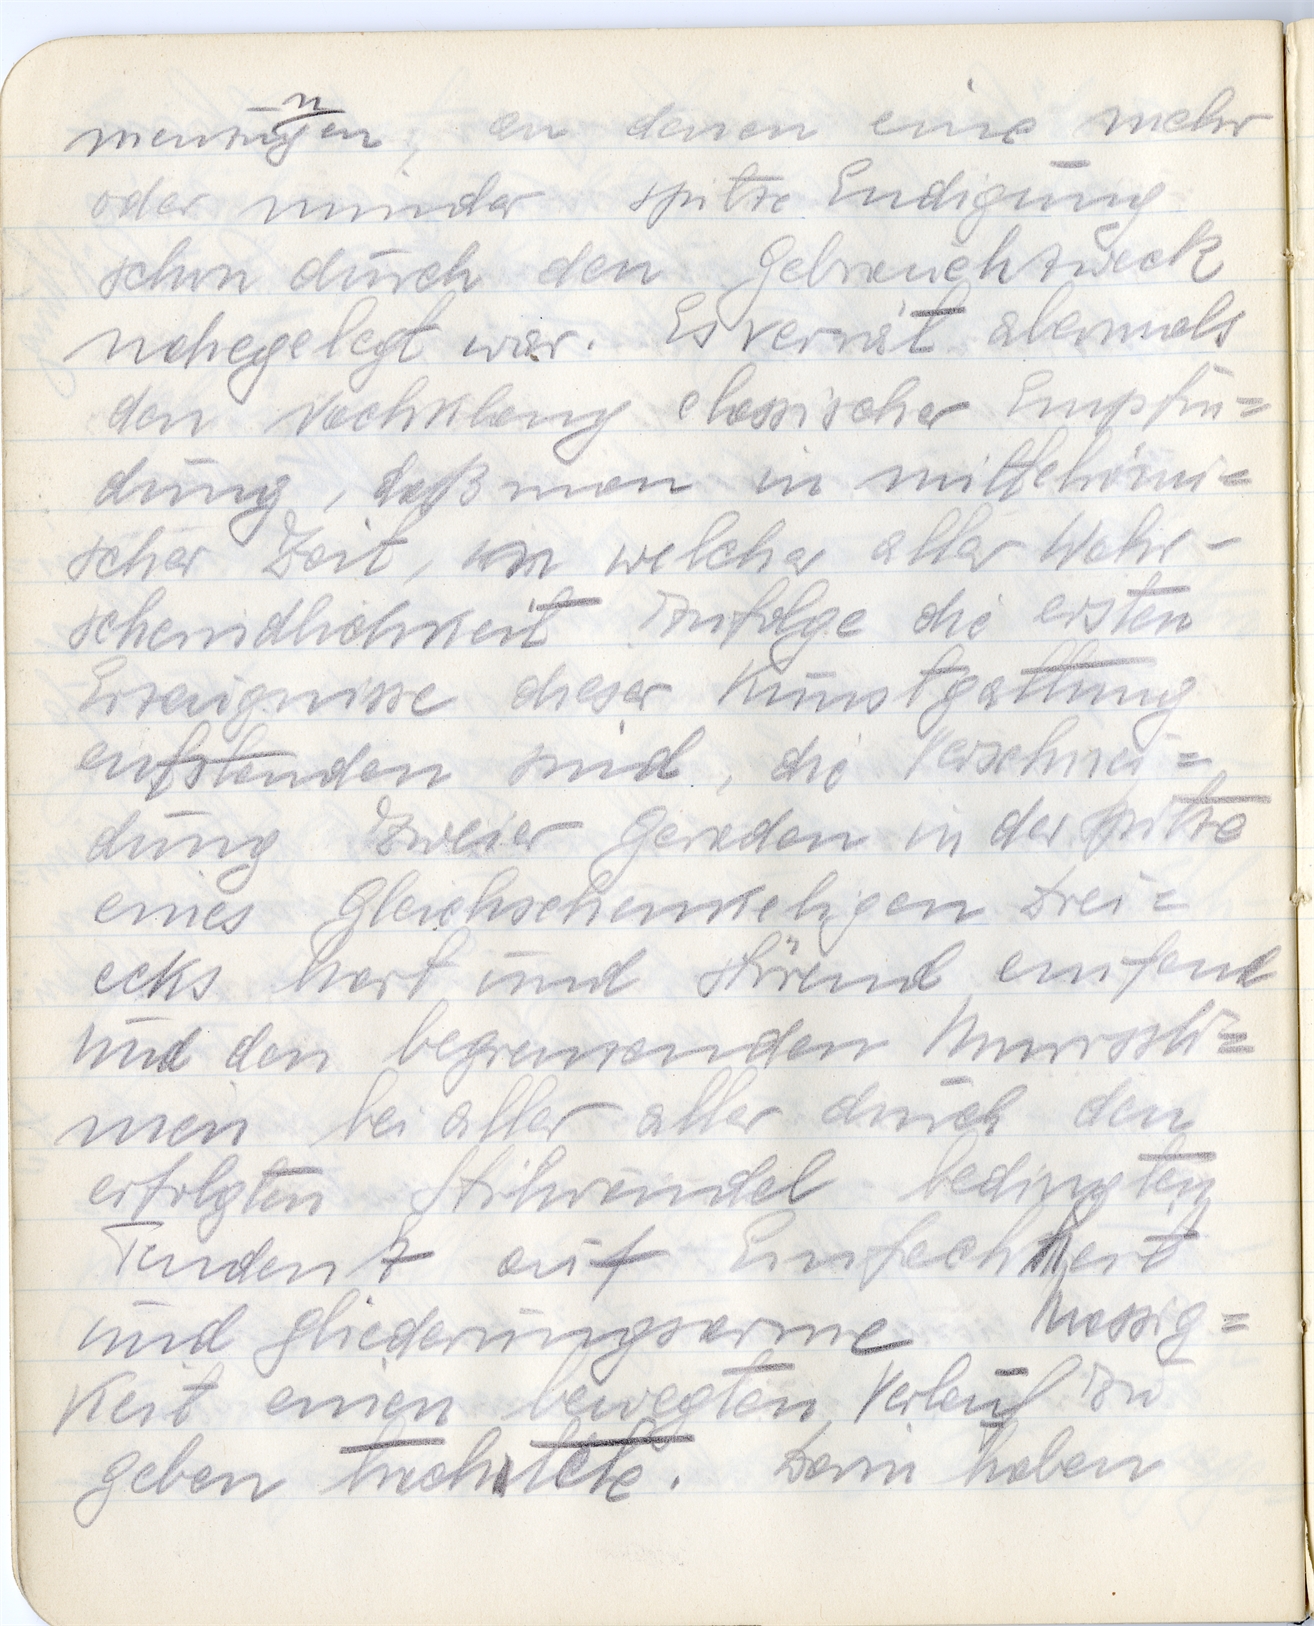 menzungen, an denen eine mehr
oder minder spitze Endigung
schon durch den Gebrauchszweck
nahegelegt war. Es verrät abermals
den Nachklang classischer Empfin=
dung, daß man in mittelrömi=
scher Zeit, in welcher aller Wahr-
scheinlichkeit zufolge die ersten
Erzeugnisse dieser Kunstgattung
entstanden sind, die Verschnei=
dung zweier Geraden in der Spitze
eines Gleichschenkeligen Drei=
ecks hart und störend empfand
und den begrenzenden Umrissli=
nien bei aller aller durch den
erfolgten Stilwandel bedingten
Tendenz auf Einfachheit
und gliederungsarme Massig=
keit einen bewegten Verlauf zu
geben trachtete. Darin haben